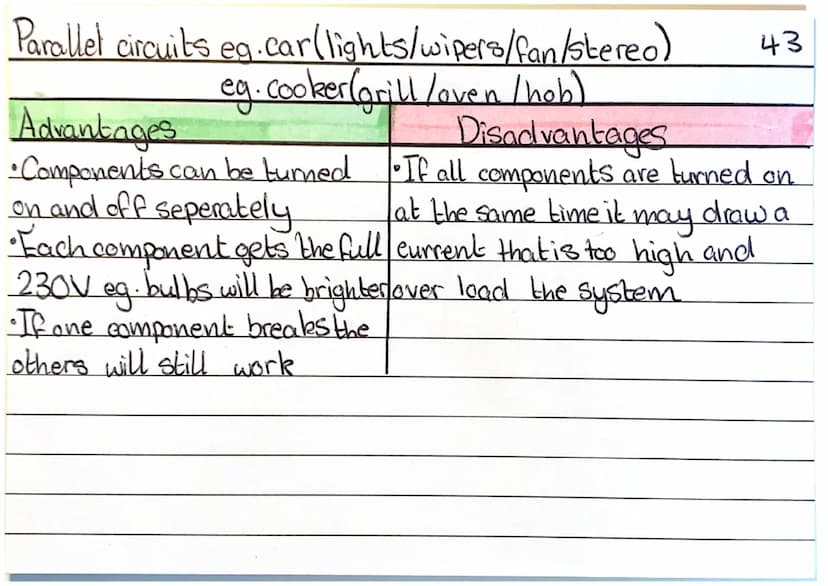 Parallel circuits eg. car (lights/wipers/fan/stereo) 43
eg. cooker (grill/oven/hob)
Advantages
• Components can be turned
on and off seperately
• Each component gets the full
230V eg. bulbs will be brighter
• If one component breaks the
others will still work
Disadvantages
• If all components are turned on
at the same time it may draw a
current that is too high and
over load the system